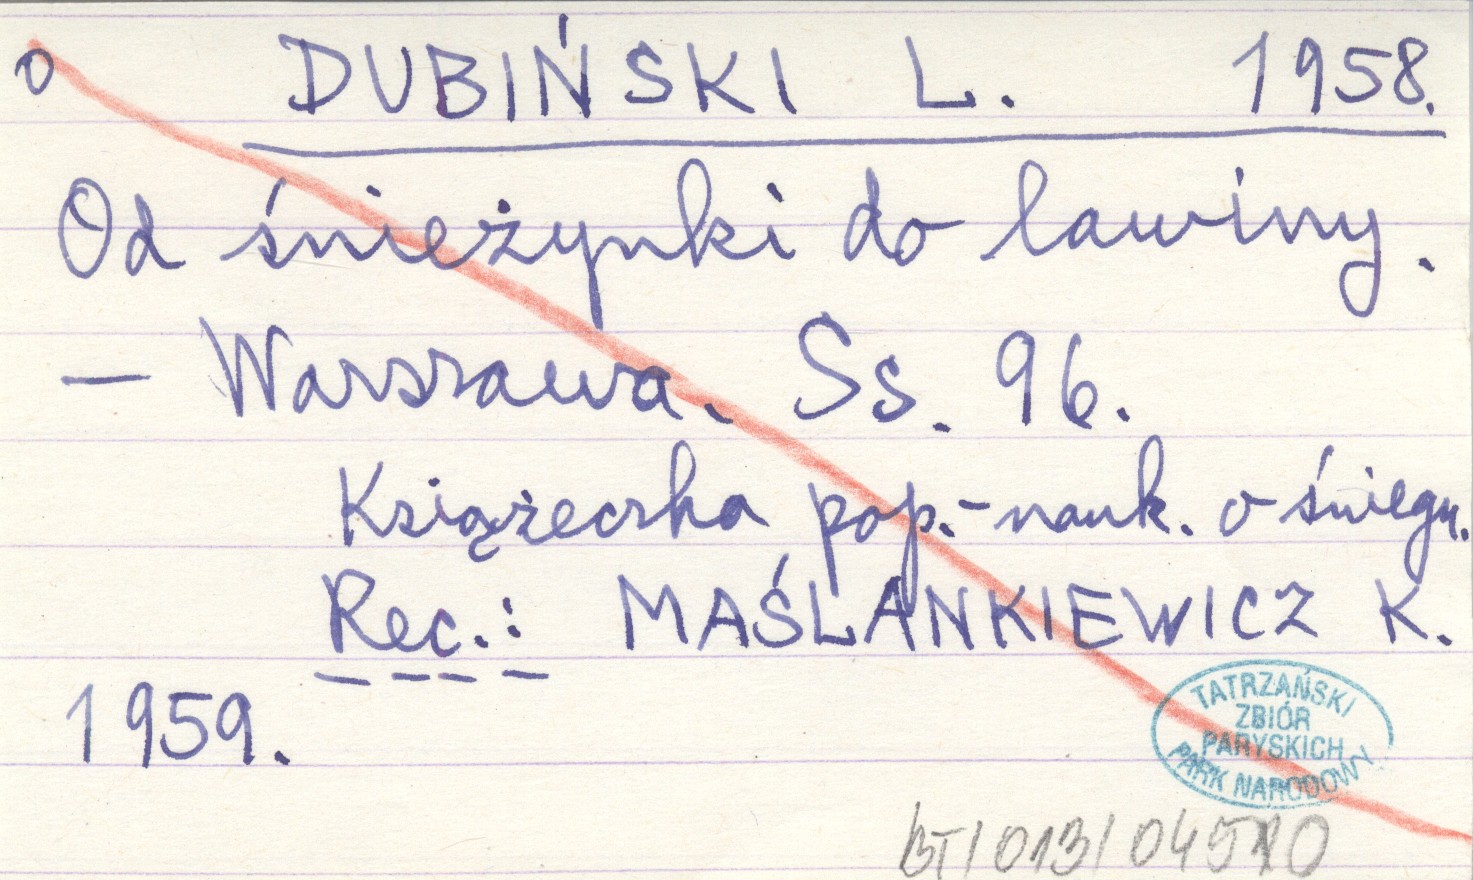 o DUBIŃSKI L. 1958.
Od śnieżynki do lawiny.
— Warszawa. Ss. 96.
Książeczka pop.-nauk. o śniegu.
Rec.: MAŚLANKIEWICZ K.
1959.
TATRZAŃSKI
ZBIÓR
PARYSKICH
PARK NARODOWY
BT/013/